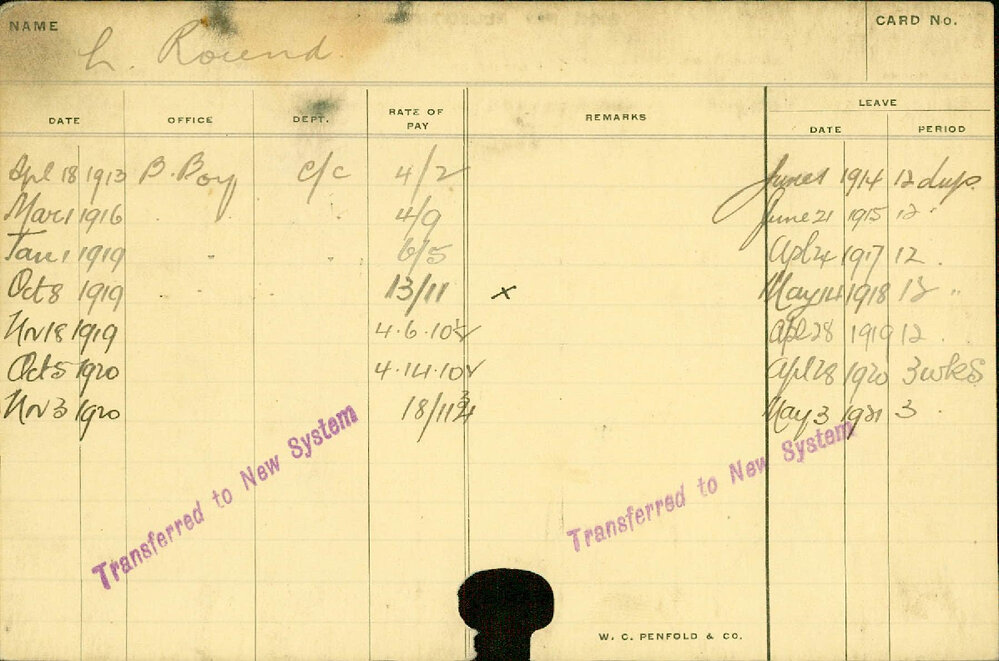 NAME CARD No.
L. Round
LEAVE
DATE OFFICE DEPT. RATE OF PAY REMARKS DATE PERIOD
Apl 18 1913 B. Boy C/C 4/2 June 1 1914 12 days
Mar 1 1916 " " 4/9 June 21 1915 12 "
Jan 1 1919 " " 6/5 Apl 24 1917 12 "
Oct 8 1919 13/11 x May 14 1918 12 "
Nov 18 1919 4.6.10½ Apl 28 1919 12
Oct 5 1920 4.14.10½ Apl 28 1920 3 wks
Nov 3 1920 18/11¾ May 3 1921 3 "
Transferred to New System
Transferred to New System
W. C. PENFOLD & CO.